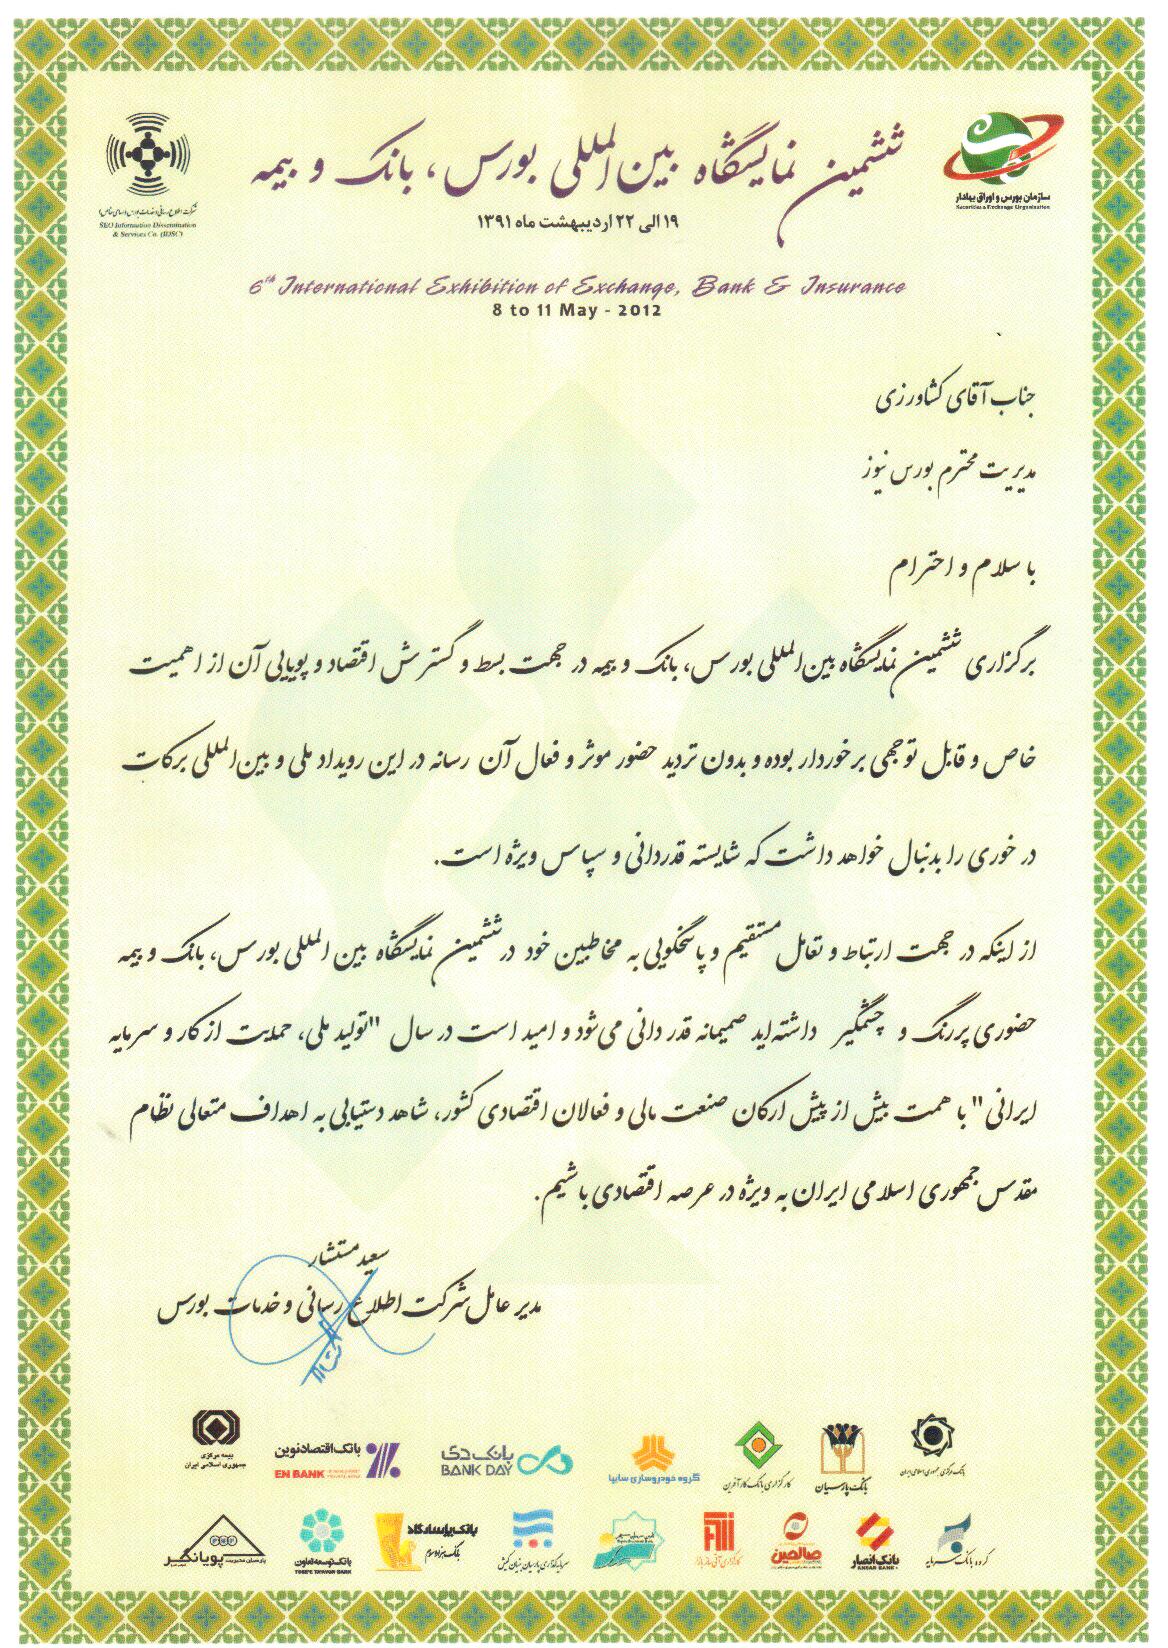 ششمین نمایشگاه بین‌المللی بورس، بانک و بیمه
۱۹ الی ۲۲ اردیبهشت ماه ۱۳۹۱
سازمان بورس و اوراق بهادار
Securities & Exchange Organization
SEO Information Dissemination
& Services Co. (IDSC)
6th International Exhibition of Exchange, Bank & Insurance
8 to 11 May - 2012
جناب آقای کشاورزی
مدیریت محترم بورس نیوز
با سلام و احترام
برگزاری ششمین نمایشگاه بین‌المللی بورس، بانک و بیمه در جهت بسط و گسترش اقتصاد و پویایی آن از اهمیت
خاص و قابل توجهی برخوردار بوده و بدون تردید حضور موثر و فعال آن رسانه در این رویداد ملی و بین‌المللی برکات
در خوری را بدنبال خواهد داشت که شایسته قدردانی و سپاس ویژه است.
از اینکه در جهت ارتباط و تعامل مستقیم و پاسخگویی به مخاطبین خود در ششمین نمایشگاه بین المللی بورس، بانک و بیمه
حضوری پررنگ و چشمگیر داشته‌اید صمیمانه قدر دانی می‌شود و امید است در سال "تولید ملی، حمایت از کار و سرمایه
ایرانی" با همت بیش از پیش ارکان صنعت مالی و فعالان اقتصادی کشور، شاهد دستیابی به اهداف متعالی نظام
مقدس جمهوری اسلامی ایران به ویژه در عرصه اقتصادی باشیم.
سعید مستشار
مدیر عامل شرکت اطلاع رسانی و خدمات بورس
بانک مرکزی جمهوری اسلامی ایران
بانک پارسیان
کارگزاری بانک کارآفرین
گروه خودروسازی سایپا
بانک دی
BANK DAY
بانک اقتصاد نوین
EN BANK
بیمه مرکزی
جمهوری اسلامی ایران
گروه بانک سرمایه
بانک انصار
ANSAR BANK
صالحین
سرمایه‌گذاری پارسیان بنیان کیش
بانک پاسارگاد
بانک هزاره سوم
بانک توسعه تعاون
TOSE'E TA'AVON BANK
پارسیان مدیریت پویانگر